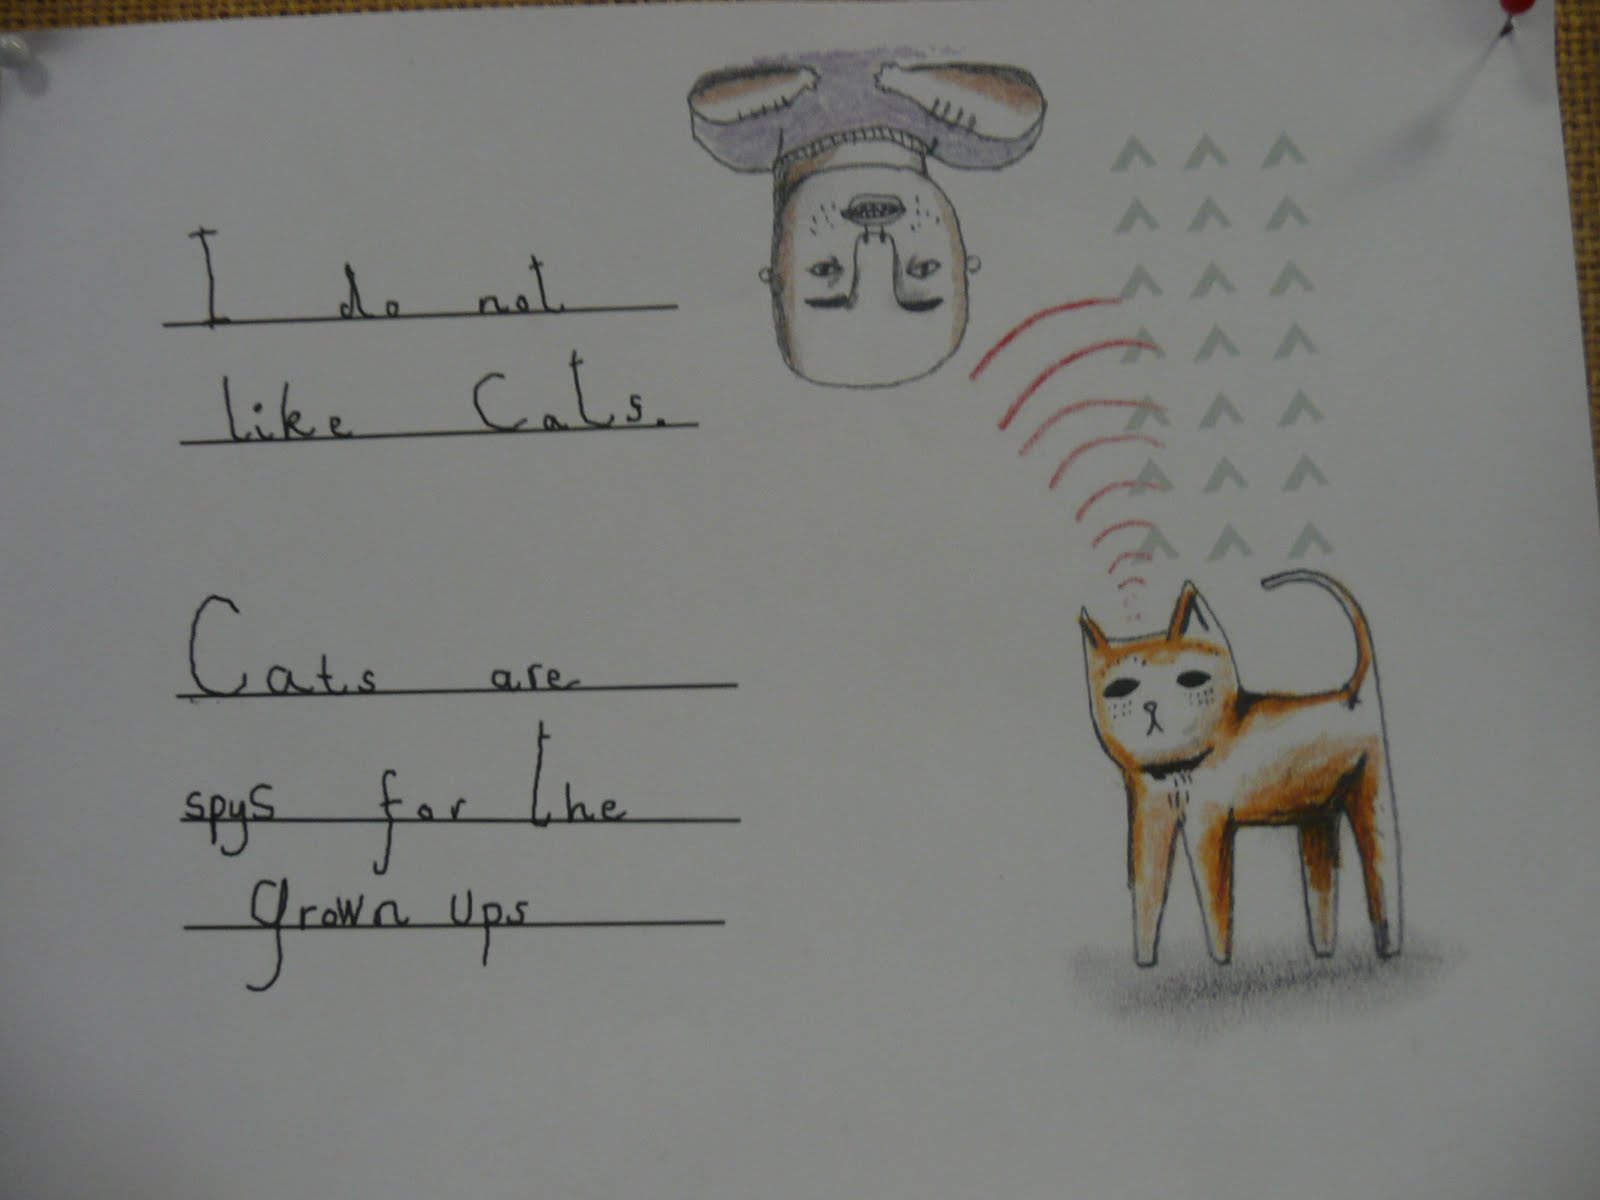 I do not
like Cats.
Cats are
spys for the
grown ups